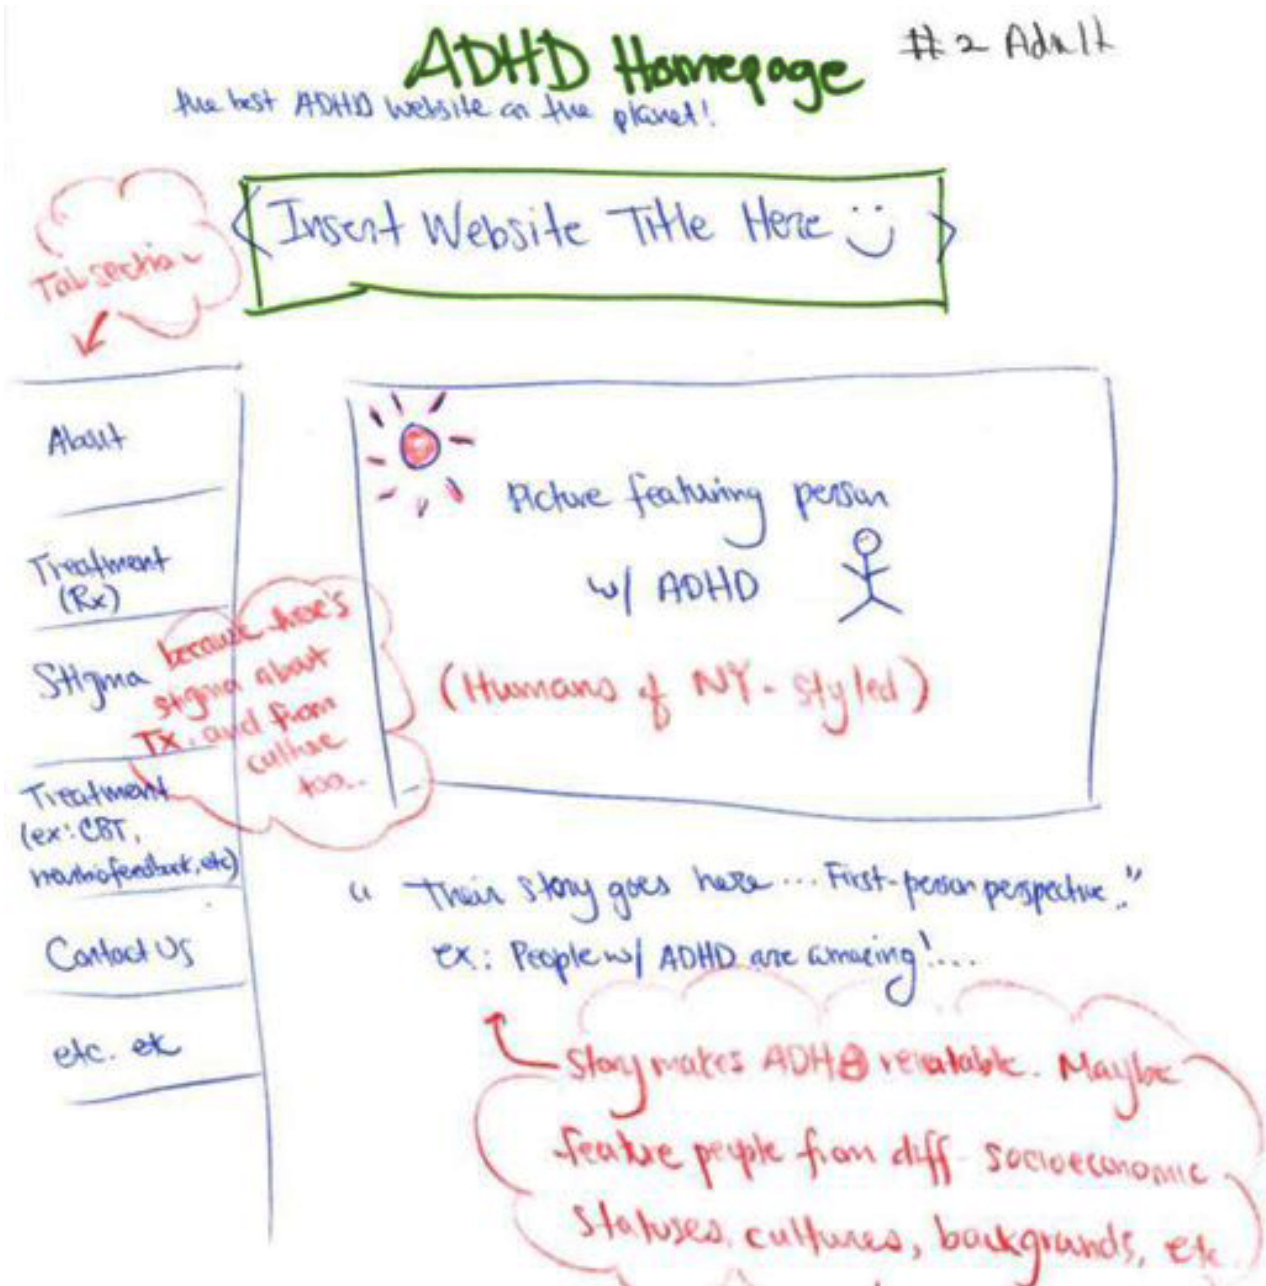 ADHD Homepage
#2 Adult
the best ADHD website on the planet!
Insert Website Title Here
Tab section
About
Treatment
(Rx)
Stigma
because there's
stigma about
Tx. and from
culture
too..
Treatment
(ex: CBT,
neurofeedback, etc)
Contact Us
etc. etc
Picture featuring person
w/ ADHD
(Humans of NY-styled)
" Their story goes here... First-person perspective."
ex: People w/ ADHD are amazing!...
Story makes ADHD relatable. Maybe
feature people from diff socioeconomic
statuses, cultures, backgrounds, etc.